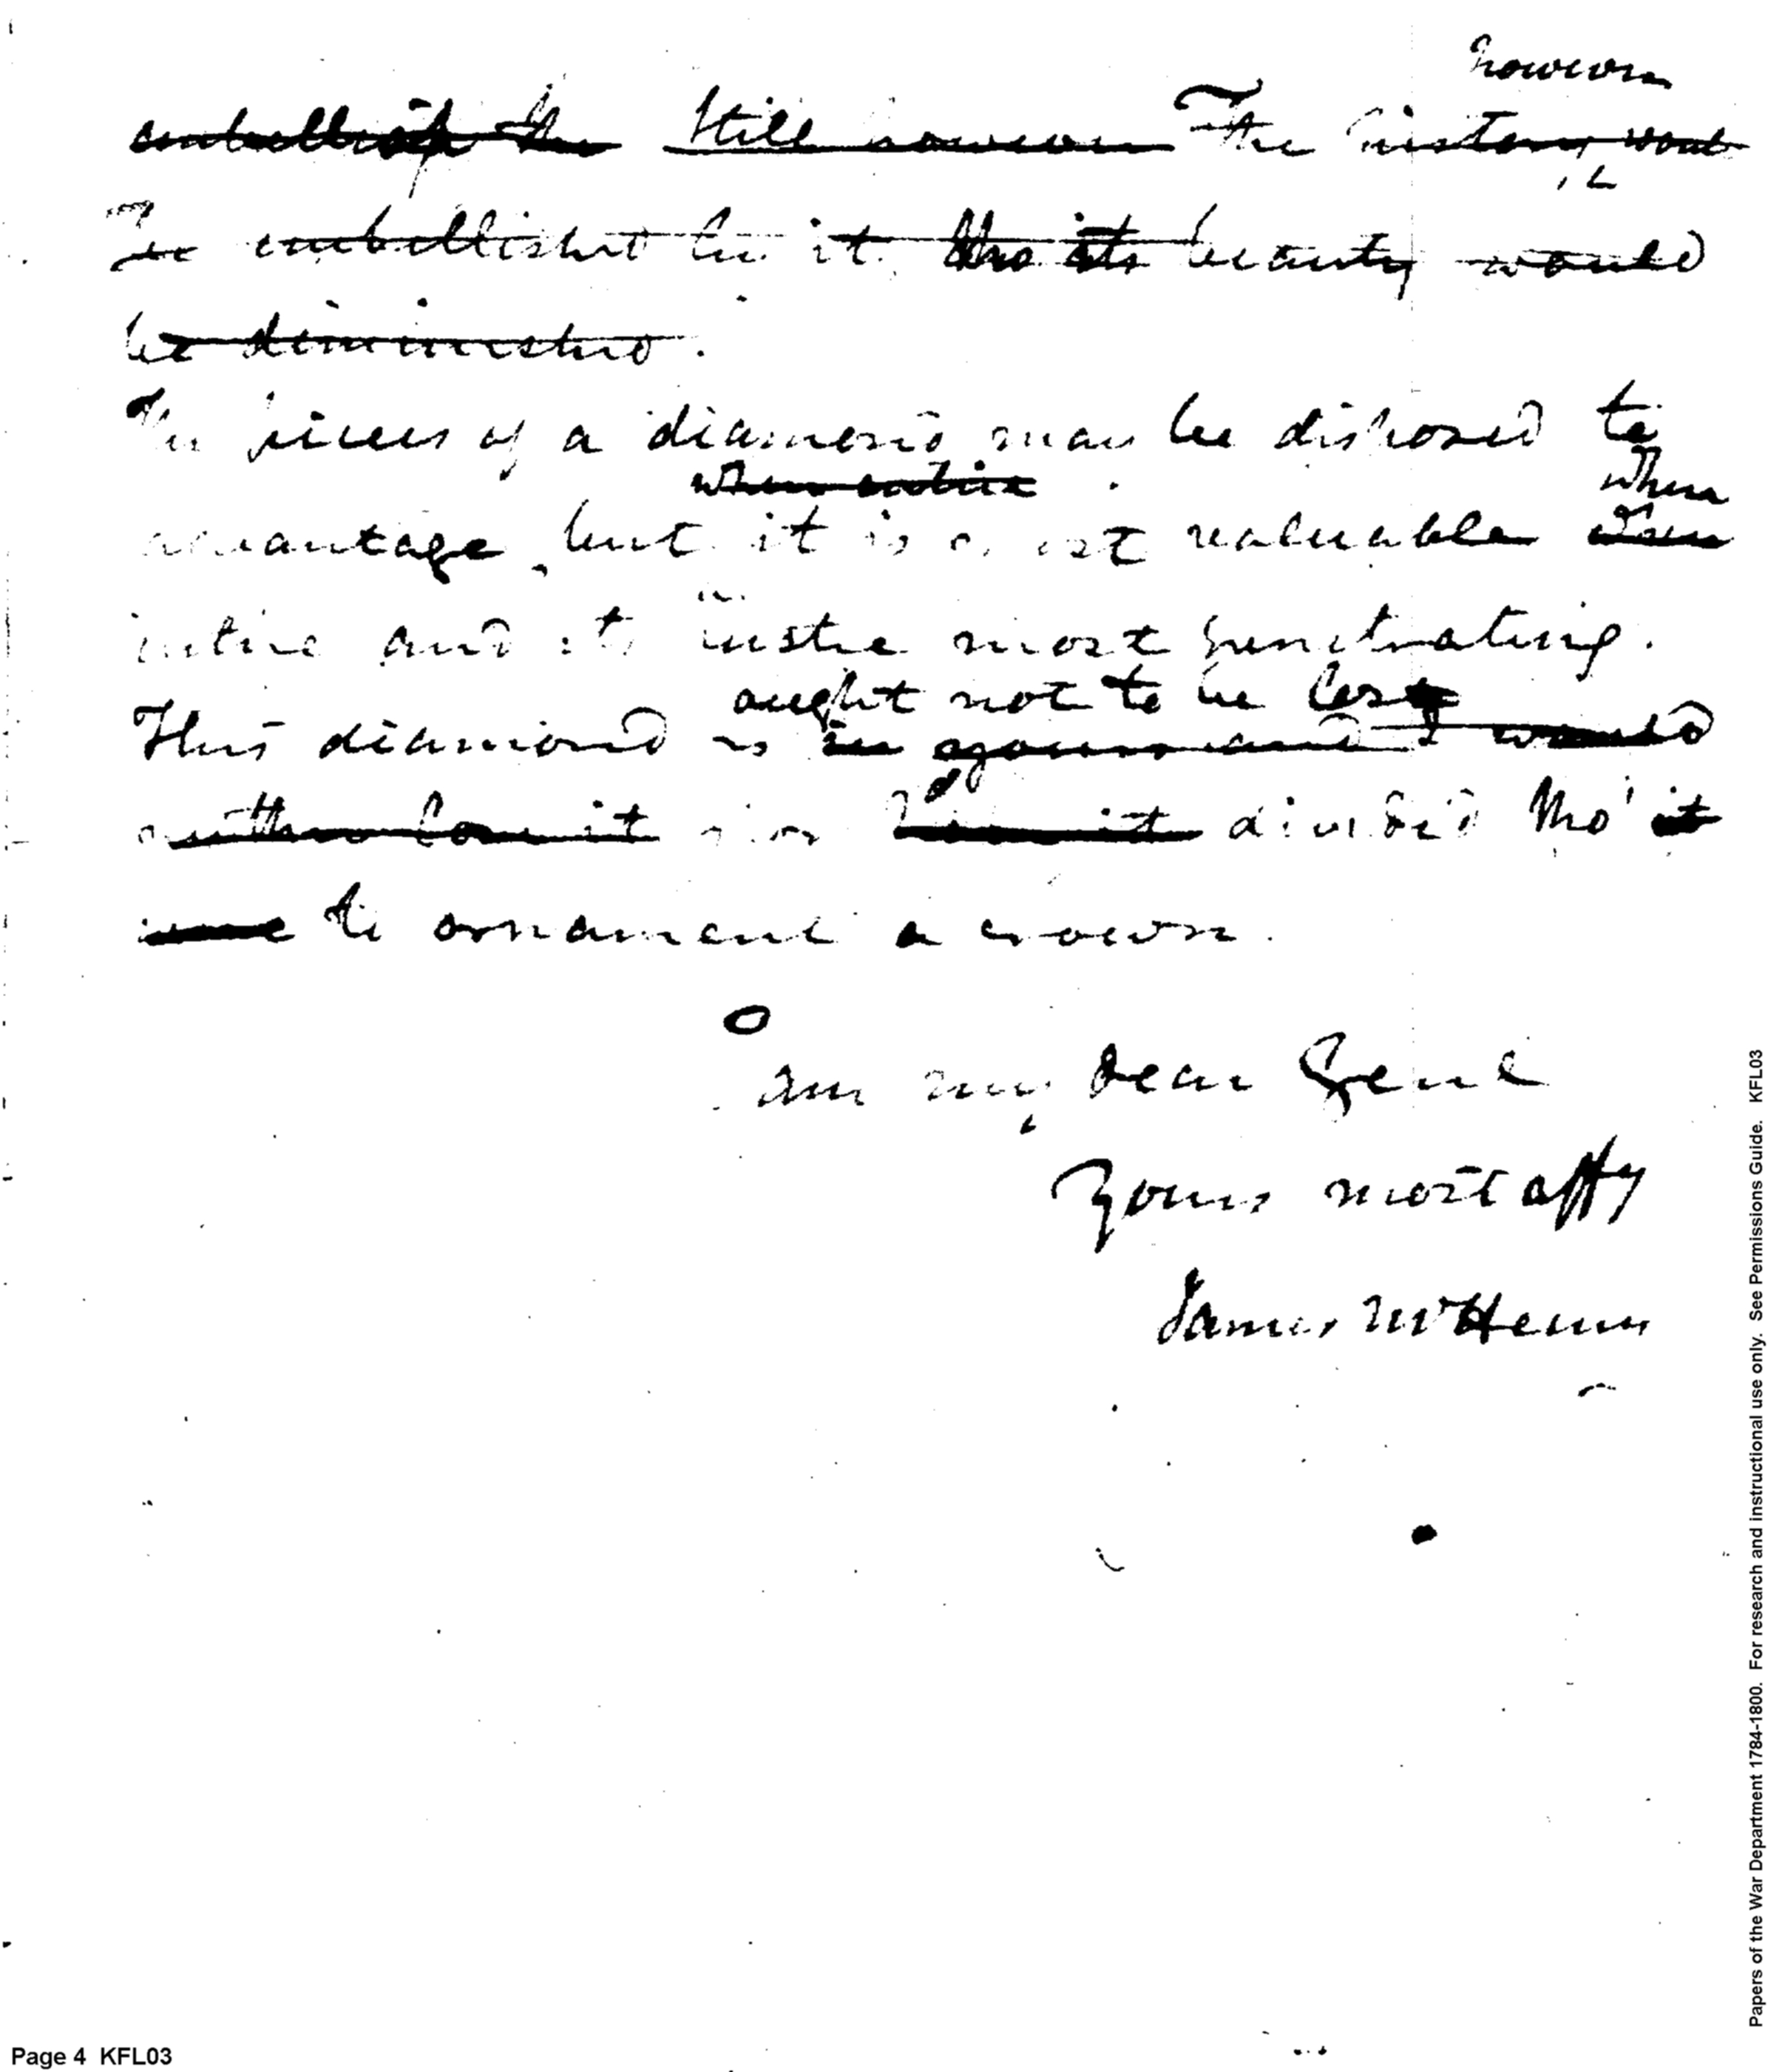 however
embellish the Still however The history would
be embellished by it tho its beauty would
be diminished.
The pieces of a diamond may be disposed to
when entire when
advantage, but it is most valuable when
intire and its lustre most penetrating.
ought not to be lost
This diamond is in yours and I would
neither lose it nor divided tho' it
were to ornament a crown.
I am my dear Genl
Yours most affy
James McHenry
Page 4 KFL03
Papers of the War Department 1784-1800. For research and instructional use only. See Permissions Guide. KFL03